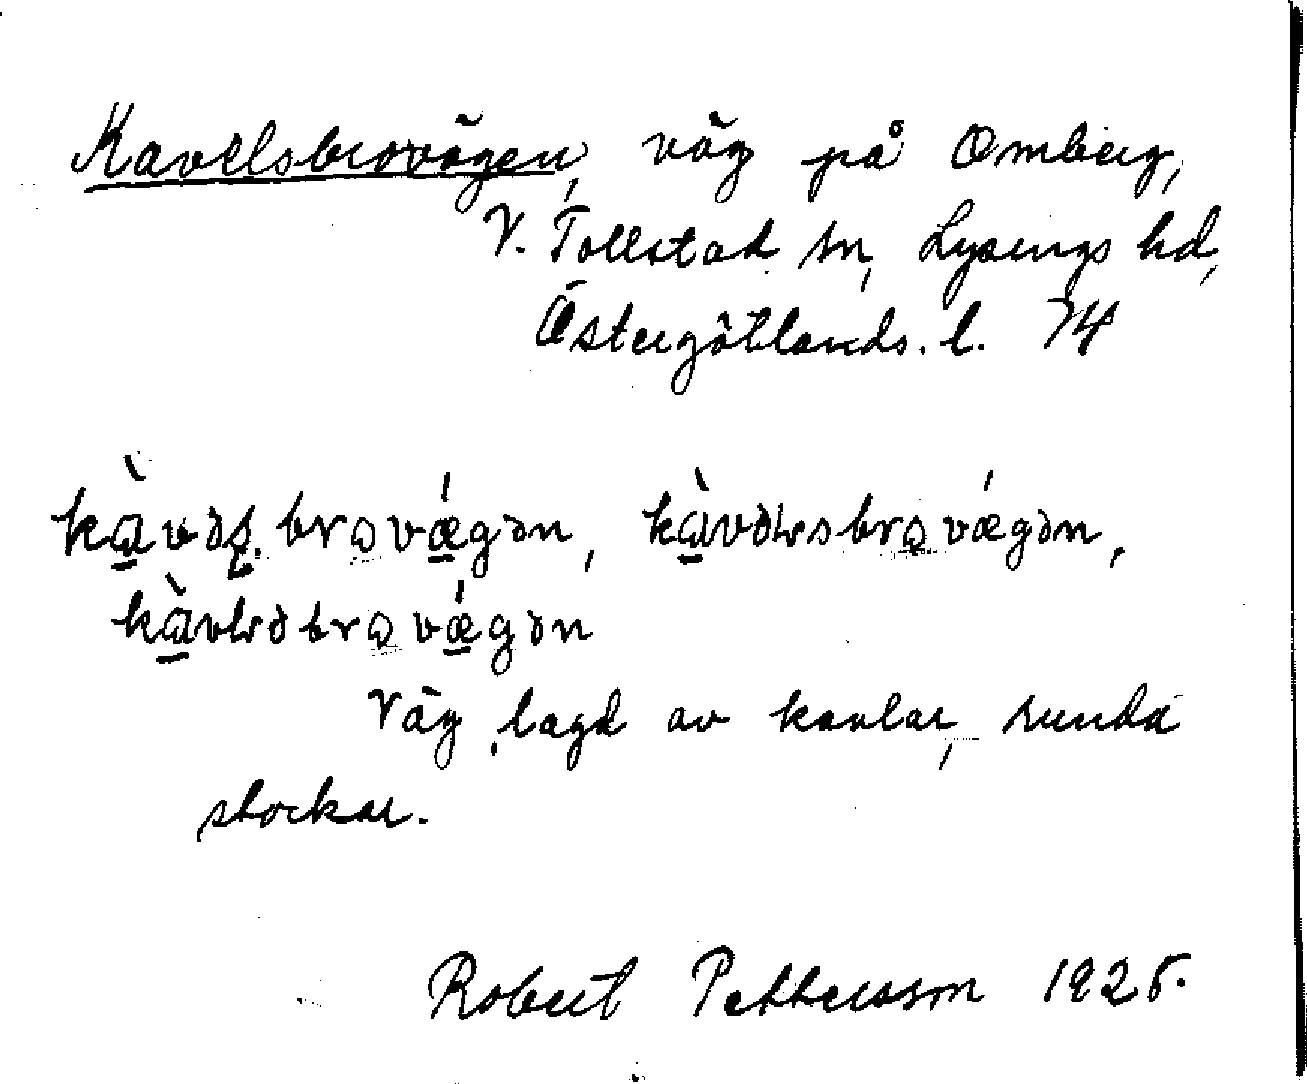 Kavelsbrovägen, väg på Omberg,
V. Tollstad sn, Lysings hd,
Östergötlands. l. 74
kàvəʂbrovǽgən, kàvəɭsbrovǽgən,
kàvɭəbrovǽgən
Väg, lagd av kavlar, runda
stockar.
Robert Pettersson 1925.